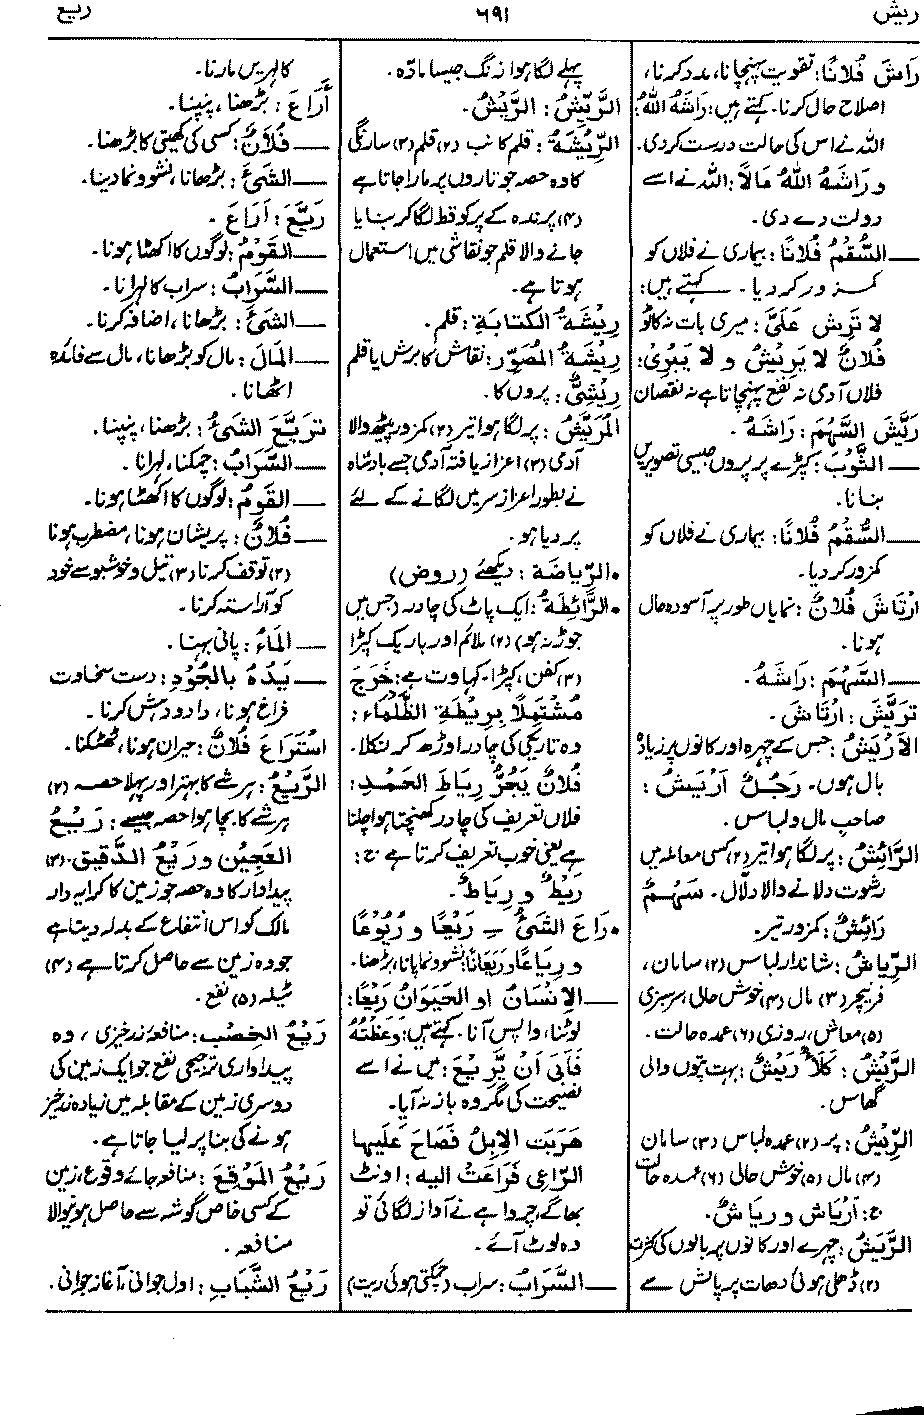 ریش
۶۹۱
ریع
رَاشَ فُلَانًا: تقویت پہنچانا، مدد کرنا،
اصلاح حال کرنا۔ کہتے ہیں: رَاشَهُ اللّٰهُ:
اللہ نے اس کی حالت درست کردی۔
و رَاشَهُ اللّٰهُ مَالًا: اللہ نے اسے
دولت دے دی۔
— السُّقْمُ فُلَانًا: بیماری نے فلاں کو
کمزور کر دیا۔ — کہتے ہیں:
لا تَرِش عَلَیَّ: میری بات نہ کاٹو
فُلَانٌ لا یَرِیْشُ و لا یَبْرِیْ:
فلاں آدمی نہ نفع پہنچاتا ہے نہ نقصان
رَیَّشَ السَّهْمَ: رَاشَهُ۔
— الثَّوْبَ: کپڑے پر پروں جیسی تصویریں
بنانا۔
— السُّقْمُ فُلَانًا: بیماری نے فلاں کو
کمزور کردیا۔
ارْتَاشَ فُلَانٌ: نمایاں طور پر آسودہ حال
ہونا۔
— السَّهْمَ: رَاشَهُ۔
تَرَیَّشَ: ارْتَاشَ۔
الأَرْیَشُ: جس کے چہرہ اور کانوں پر زیادہ
بال ہوں۔ رَجُلٌ أَرْیَشُ:
صاحب مال و لباس۔
الرَّائِشُ: پر لگا ہوا تیر (۲) کسی معاملہ میں
رشوت دلانے والا دلّال۔ سَهْمٌ
رَائِشٌ: کمزور تیر۔
الرِّیَاشُ: شاندار لباس (۲) سامان،
فرنیچر (۳) مال (۴) خوش حالی، سرسبزی
(۵) معاش، روزی (۶) عمدہ حالت۔
الرَّیِّشُ: کَلَأٌ رَیِّشٌ: بہت پتوں والی
گھاس۔
الرِّیْشُ: پر (۲) عمدہ لباس (۳) سامان
(۴) مال (۵) خوش حالی (۶) عمدہ حالت
ج: أَرْیَاش و رِیَاشٌ۔
الرَّیَشُ: چہرے اور کانوں پر بالوں کی کثرت
(۲) ڈھلی ہوئی دھات پر پالش سے
پہلے لگا ہوا زنگ جیسا مادّہ۔
الرَّیِّشُ: الرَّیْشُ۔
الرِّیْشَةُ: قلم کا نب (۲) قلم (۳) سارنگی
کا وہ حصہ جو تاروں پر مارا جاتا ہے
(۴) پرندہ کے پر کو قط لگا کر بنایا
جانے والا قلم جو نقاشی میں استعمال
ہوتا ہے۔
رِیْشَةُ الکِتَابَةِ: قلم۔
رِیْشَةُ المُصَوِّرِ: نقاش کا برش یا قلم
رِیْشِیٌّ: پروں کا۔
المُرَیَّشُ: پر لگا ہوا تیر (۲) کمزور پیٹھ والا
آدمی (۳) اعزاز یافتہ آدمی جسے بادشاہ
نے بطور اعزاز سر میں لگانے کے لئے
پر دیا ہو۔
• الرِّیَاضَة: دیکھئے (روض)
• الرَّائِطَةُ: ایک پاٹ کی چادر (جس میں
جوڑ نہ ہو) (۲) ملائم اور باریک کپڑا
(۳) کفن، کپڑا۔ کہاوت ہے: خَرَجَ
مُشْتَمِلًا بِرِیْطَةِ الظَّلْمَاءِ:
وہ تاریکی کی چادر اوڑھ کر نکلا۔
فُلَانٌ یَجُرُّ رِیَاطَ الحَمْدِ:
فلاں تعریف کی چادر کھینچتا ہوا چلتا
ہے یعنی خوب تعریف کرتا ہے ج:
رَیْطٌ و رِیَاطٌ۔
• رَاعَ الشَّیُٔ — رَیْعًا و رُیُوْعًا
و رِیَاعًا و رَیَعَانًا: نشو و نما پانا، بڑھنا۔
— الإِنْسَانُ او الحَیَوَانُ رَیْعًا:
لوٹنا، واپس آنا۔ کہتے ہیں: وَعَظْتُهُ
فَأَبَی أَنْ یَّرِیْعَ: میں نے اسے
نصیحت کی مگر وہ باز نہ آیا۔
هَرَبَتِ الإِبِلُ فَصَاحَ عَلَیْها
الرَّاعِی فَرَاعَتْ الیه: اونٹ
بھاگے، چرواہے نے آواز لگائی تو
وہ لوٹ آئے۔
— السَّرَابُ: سراب (چمکتی ہوئی ریت)
کا لہریں مارنا۔
أَرَاعَ: بڑھنا، پنپنا۔
— فُلَانٌ: کسی کی کھیتی کا بڑھنا۔
— الشَّیَٔ: بڑھانا، نشو و نما دینا۔
رَیَّعَ: أرَاعَ۔
— القَوْمُ: لوگوں کا اکھٹا ہونا۔
— السَّرَابُ: سراب کا لہرانا۔
— الشَّیَٔ: بڑھانا، اضافہ کرنا۔
— المَالَ: مال کو بڑھانا، مال سے فائدہ
اٹھانا۔
تَرَیَّعَ الشَّیُٔ: بڑھنا، پنپنا۔
— السَّرَابُ: چمکنا، لہرانا۔
— القَوْمُ: لوگوں کا اکھٹا ہونا۔
— فُلَانٌ: پریشان ہونا، مضطرب ہونا
(۲) توقف کرنا (۳) تیل و خوشبو سے خود
کو آراستہ کرنا۔
— المَاءُ: پانی بہنا۔
— یَدُهُ بِالجُوْدِ: دست سخاوت
فراخ ہونا، داد و دہش کرنا۔
اسْتَرَاعَ فُلَانٌ: حیران ہونا، ٹھٹکنا۔
الرَّیْعُ: ہر شے کا بہتر اور پہلا حصہ (۲)
ہر شے کا بچا ہوا حصہ جیسے: رَیْعُ
العَجِیْنِ و رَیْعُ الدَّقِیْقِ۔ (۳)
پیداوار کا وہ حصہ جو زمین کا کرایہ دار
مالک کو اس انتفاع کے بدلہ دیتا ہے
جو وہ زمین سے حاصل کرتا ہے (۴)
ٹیلہ (۵) نفع۔
رَیْعُ الخِصْبِ: منافعۂ زرخیزی، وہ
پیداواری ترجیحی نفع جو ایک زمین کی
دوسری زمین کے مقابلہ میں زیادہ زرخیز
ہونے کی بنا پر لیا جاتا ہے۔
رَیْعُ المَوْقِعِ: منافعۂ جائے وقوع، زمین
کے کسی خاص گوشہ سے حاصل ہونیوالا
منافعہ۔
رَیْعُ الشَّبَابِ: اول جوانی، آغاز جوانی۔